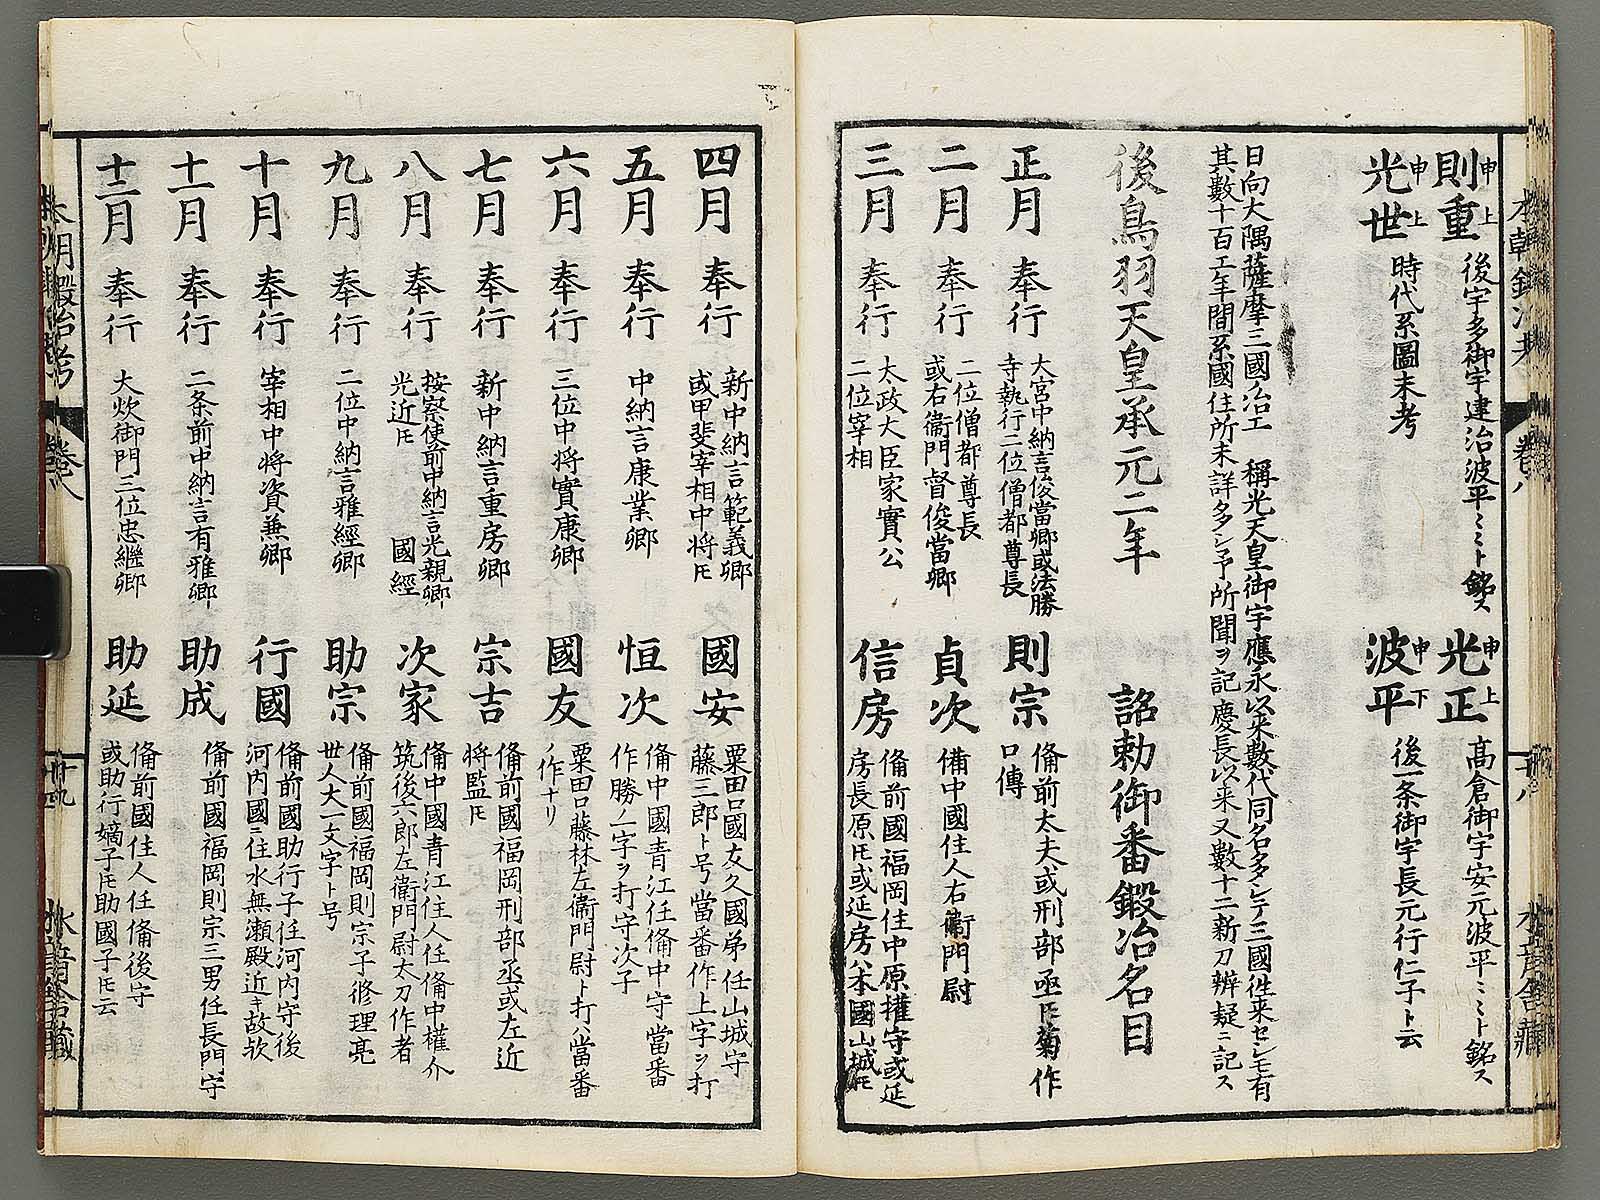 則重 申上 後宇多御宇建治波平ミミト銘ス
光正 申上 高倉御宇安元波平ミミト銘ス
光世 申上 時代系圖未考
波平 申下 後一条御宇長元行仁子ト云
日向大隅薩摩三國冶工 稱光天皇御宇應永以来數代同名多シテ三國徃来セシモ有
其數十百工年間系國住所未詳多シ予所聞ヲ記慶長以来又數十二新刀辨疑ニ記ス
後鳥羽天皇承元二年 詔勅御番鍛冶名目
正月 奉行 大宮中納言俊當卿或法勝
寺執行二位僧都尊長
則宗 偹前太夫或刑部亟𪜈菊作
口傳
二月 奉行 二位僧都尊長
或右衞門督俊當卿
貞次 備中國住人右衞門尉
三月 奉行 太政大臣家實公
二位宰相
信房 偹前國福岡住中原權守或延
房長原𪜈或延房ハ本國山城𪜈
四月 奉行 新中納言範義卿
或甲斐宰相中将𪜈
國安 粟田口國友久國弟任山城守
藤三郎ト号當番作上字ヲ打
五月 奉行 中納言康業卿
恒次 偹中國青江任偹中守當番
作勝ノ一字ヲ打守次子
六月 奉行 三位中将實康卿
國友 粟田口藤林左衞門尉ト打ハ當番
ノ作ナリ
七月 奉行 新中納言重房卿
宗吉 偹前國福岡刑部丞或左近
将監𪜈
八月 奉行 按察使前中納言光親卿
光近𪜈 國經
次家 偹中國青江住人任偹中權介
筑後六郎左衞門尉太刀作者
九月 奉行 二位中納言雅經卿
助宗 偹前國福岡則宗子修理亮
世人大一文字ト号
十月 奉行 宰相中将資兼卿
行國 偹前國助行子任河内守後
河内國ニ住水無瀬殿近キ故欤
十一月 奉行 二条前中納言有雅卿
助成 偹前國福岡則宗三男任長門守
十二月 奉行 大炊御門三位忠繼卿
助延 偹前國住人任偹後守
或助行嫡子𪜈助國子𪜈云